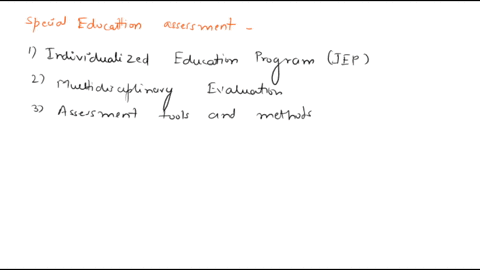 Special Education assessment -
1) Individualized Education Program (IEP)
2) Multidisciplinary Evaluation
3) Assessment tools and methods